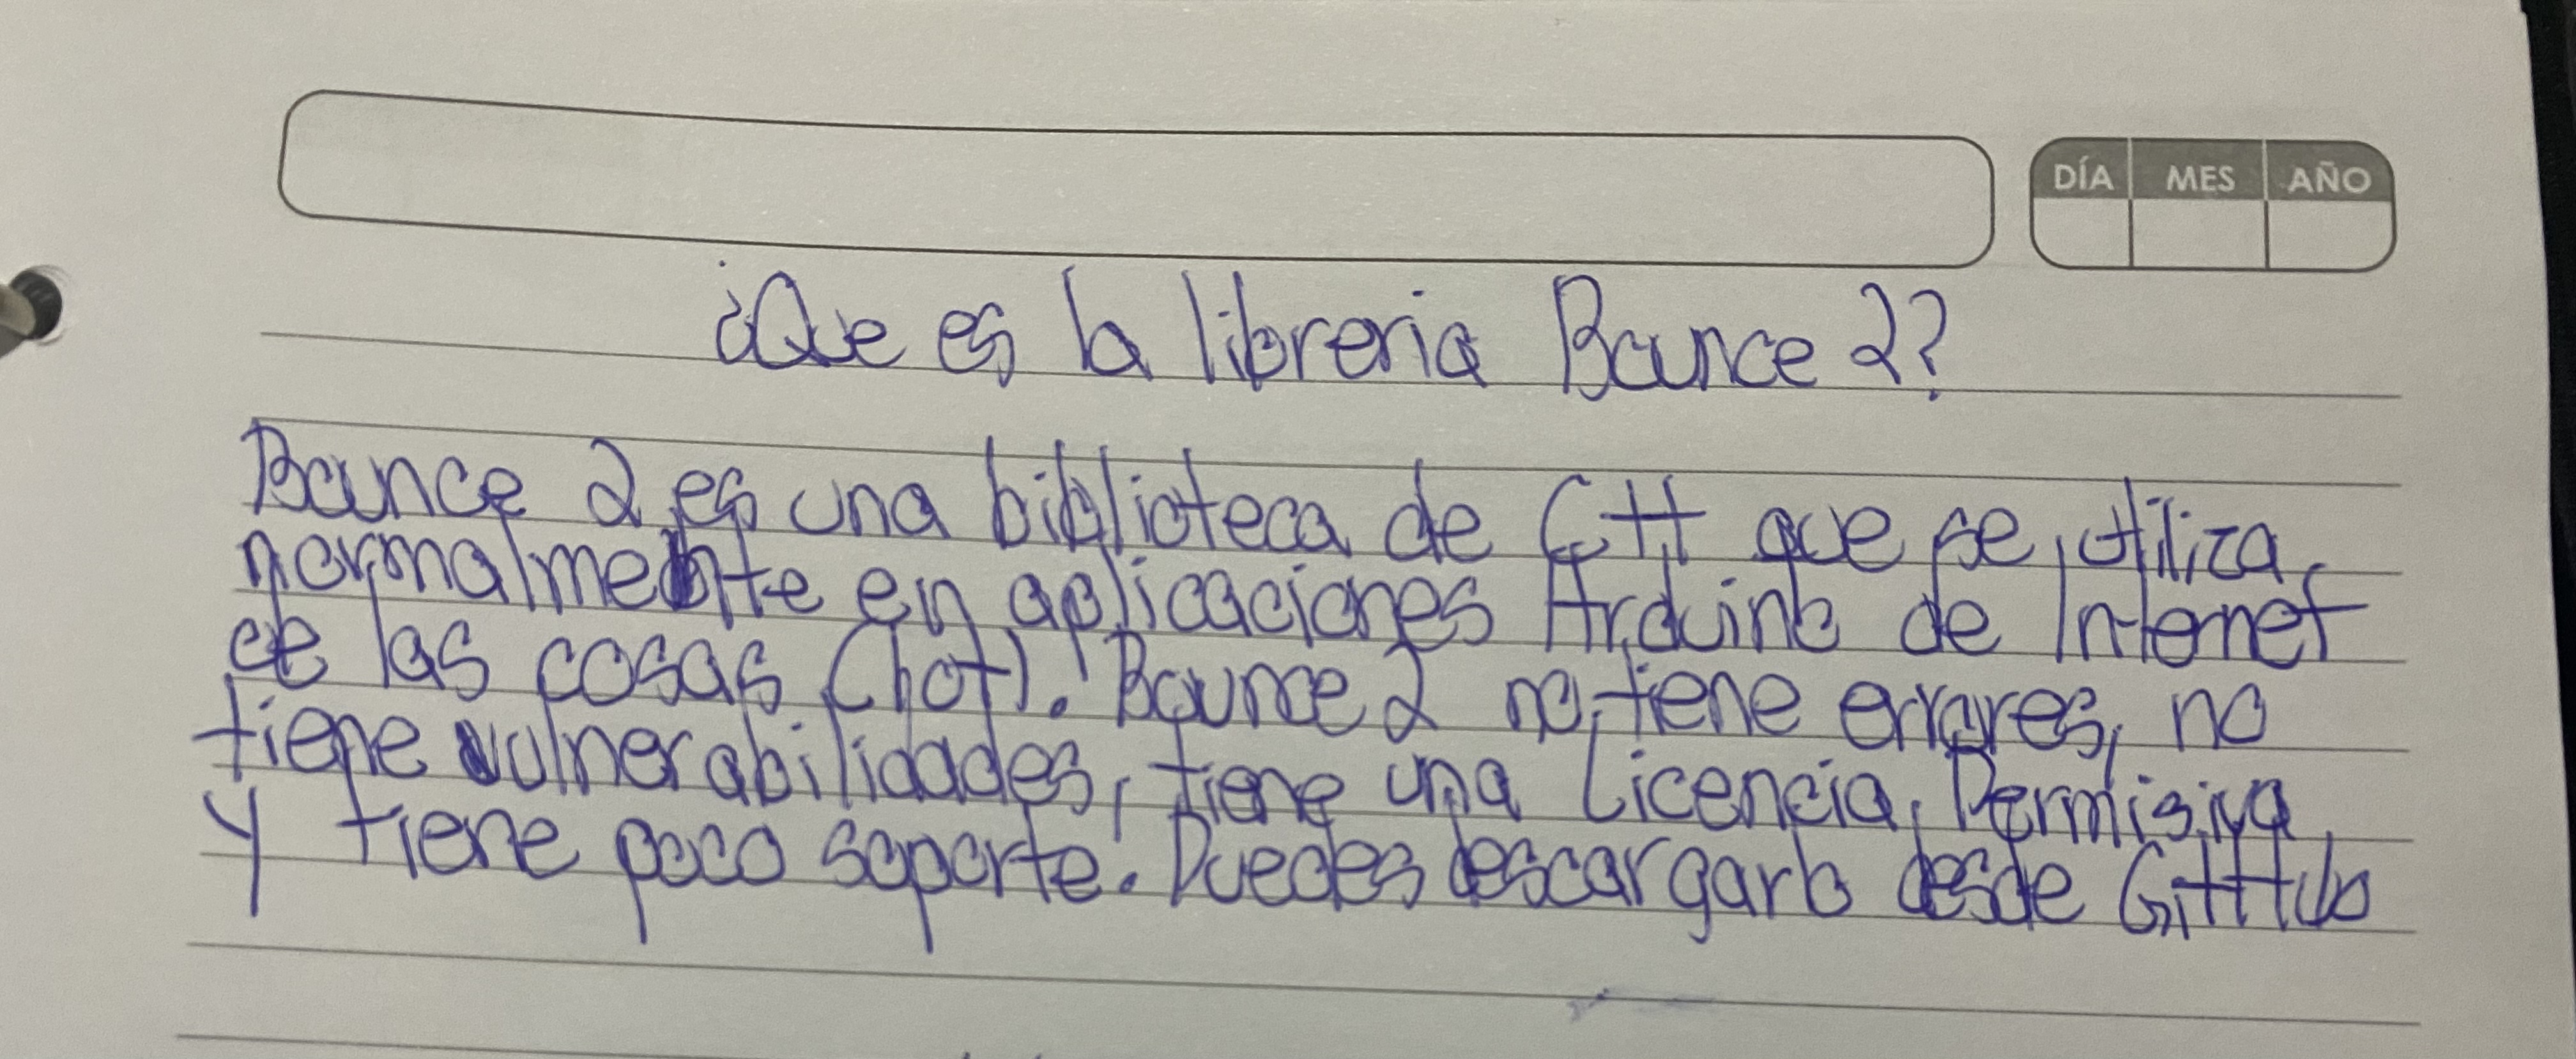 DÍA MES AÑO
¿Que es la libreria Bounce 2?
Bounce 2 es una biblioteca de C++ que se utiliza
normalmente en aplicaciones Arduino de Internet
de las cosas (Iot). Bounce 2 no tiene errores, no
tiene vulnerabilidades, tiene una Licencia Permisiva
y tiene poco soporte. Puedes descargarlo desde GitHub